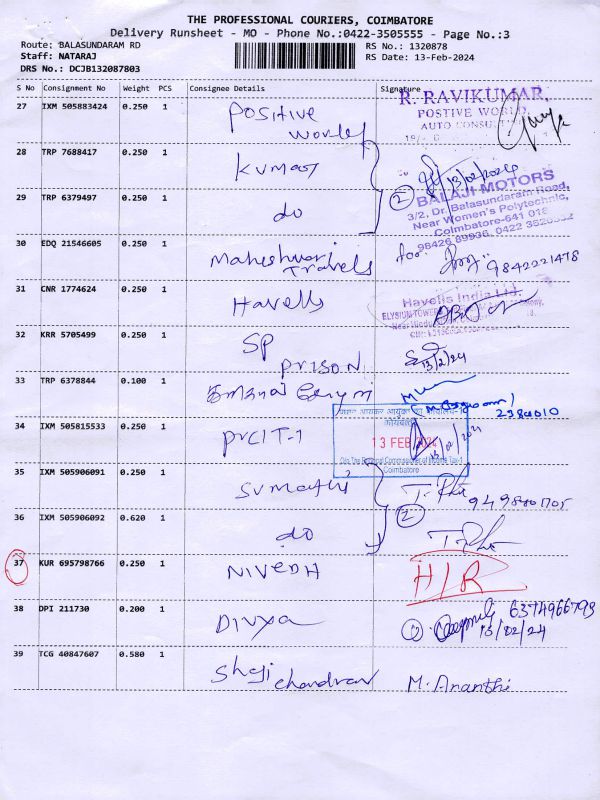 THE PROFESSIONAL COURIERS, COIMBATORE
Delivery Runsheet - MO - Phone No.:0422-3505555 - Page No.:3
Route: BALASUNDARAM RD
Staff: NATARAJ
DRS No.: DCJB132087803
RS No.: 1320878
RS Date: 13-Feb-2024
S No Consignment No Weight PCS Consignee Details Signature
27 IXM 505883424 0.250 1 Positive World
R. RAVIKUMAR,
POSTIVE WORLD,
AUTO CONSULT
28 TRP 7688417 0.250 1 Kumar 2 13/02/2024
29 TRP 6379497 0.250 1 do
BALAJI MOTORS
3/2, Dr. Balasundaram Road,
Near Women's Polytechnic,
Coimbatore-641 018
98426 89936, 0422
30 EDQ 21546605 0.250 1 Maheshwari Travels for 9842221478
31 CNR 1774624 0.250 1 Havells
Havells India Ltd.
32 KRR 5705499 0.250 1 SP Prison 13/2/24
33 TRP 6378844 0.100 1
2380010
34 IXM 505815533 0.250 1 PrCIT-1
13 FEB 2024
O/o The Principal Commissioner of Income Tax-1
Coimbatore
35 IXM 505906091 0.250 1 Sumathi
36 IXM 505906092 0.620 1 do 2
37 KUR 695798766 0.250 1 NIVEDH H/R
38 DPI 211730 0.200 1 Divya 6374966793
13/02/24
39 TCG 40847607 0.580 1 Shaji chandran M. Ananthi